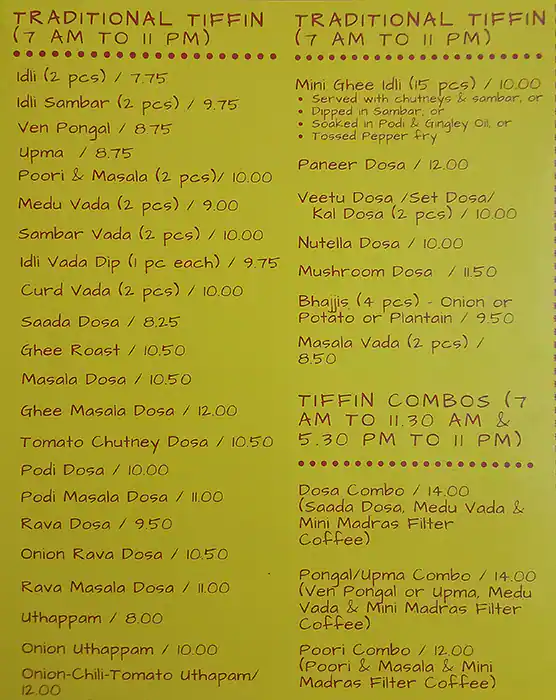 TRADITIONAL TIFFIN
(7 AM TO 11 PM)
Idli (2 pcs) / 7.75
Idli Sambar (2 pcs) / 9.75
Ven Pongal / 8.75
Upma / 8.75
Poori & Masala (2 pcs)/ 10.00
Medu Vada (2 pcs) / 9.00
Sambar Vada (2 pcs) / 10.00
Idli Vada Dip (1 pc each) / 9.75
Curd Vada (2 pcs) / 10.00
Saada Dosa / 8.25
Ghee Roast / 10.50
Masala Dosa / 10.50
Ghee Masala Dosa / 12.00
Tomato Chutney Dosa / 10.50
Podi Dosa / 10.00
Podi Masala Dosa / 11.00
Rava Dosa / 9.50
Onion Rava Dosa / 10.50
Rava Masala Dosa / 11.00
Uthappam / 8.00
Onion Uthappam / 10.00
Onion-Chili-Tomato Uthapam/
12.00
TRADITIONAL TIFFIN
(7 AM TO 11 PM)
Mini Ghee Idli (15 pcs) / 10.00
• Served with chutneys & sambar, or
• Dipped in Sambar, or
• Soaked in Podi & Gingley Oil, or
• Tossed Pepper fry
Paneer Dosa / 12.00
Veetu Dosa /Set Dosa/
Kal Dosa (2 pcs) / 10.00
Nutella Dosa / 10.00
Mushroom Dosa / 11.50
Bhajjis (4 pcs) - Onion or
Potato or Plantain / 9.50
Masala Vada (2 pcs) /
8.50
TIFFIN COMBOS (7
AM TO 11.30 AM &
5.30 PM TO 11 PM)
Dosa Combo / 14.00
(Saada Dosa, Medu Vada &
Mini Madras Filter
Coffee)
Pongal/Upma Combo / 14.00
(Ven Pongal or Upma, Medu
Vada & Mini Madras Filter
Coffee)
Poori Combo / 12.00
(Poori & Masala & Mini
Madras Filter Coffee)